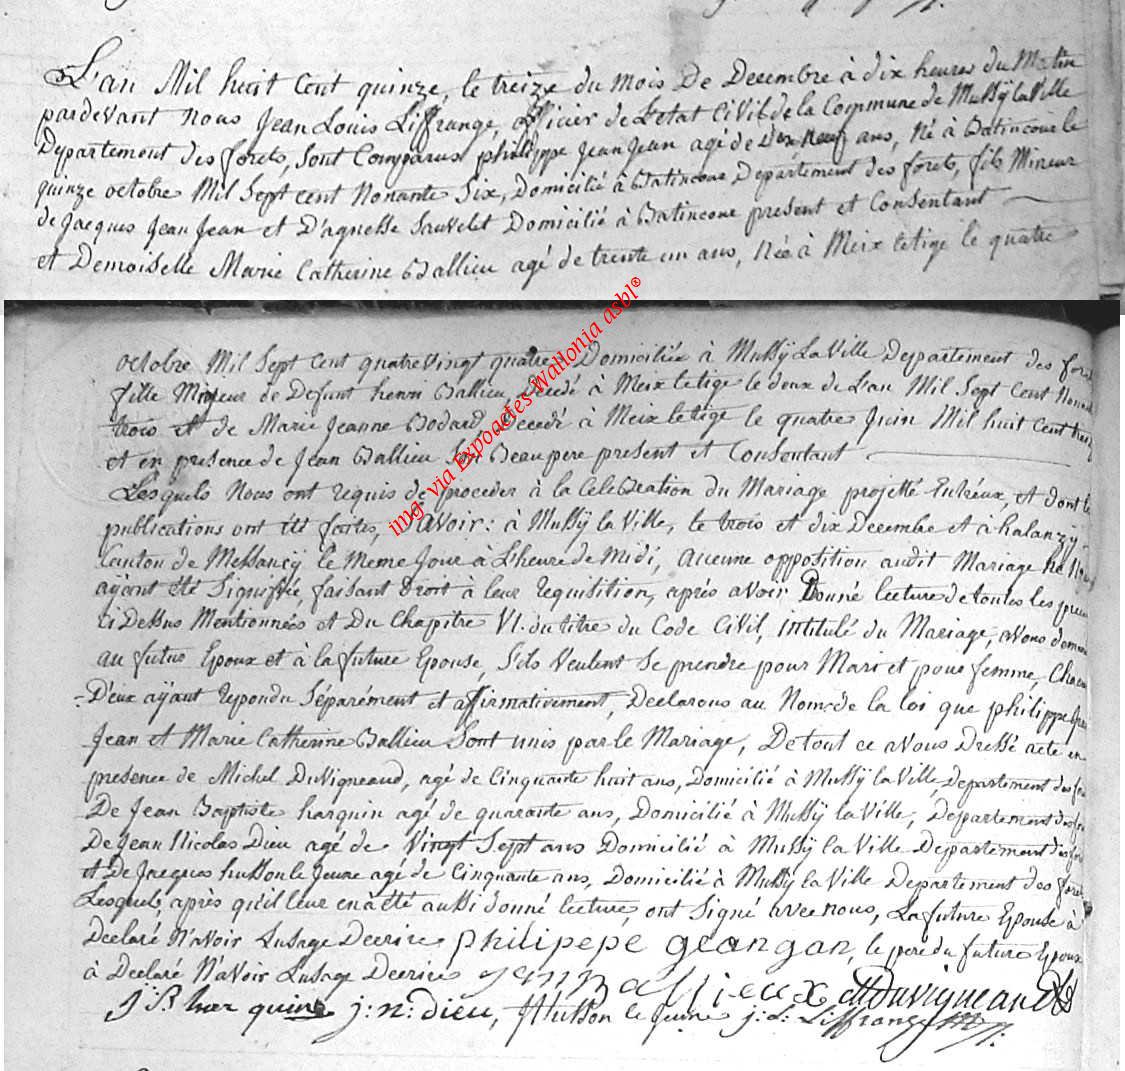 L'an Mil huit Cent quinze, le treize du mois De Decembre à dix heures du Matin
pardevant Nous Jean Louis Liffrange, officier de L'etat Civil de la Commune de Mussÿ la Ville
Departement des forets, sont Comparus philippe Jean Jean agé de Dix Neuf ans, Né à Batincour le
quinze octobre Mil Sept cent Nonante Six, Domicilié à Batincour Departement des forets, fils Mineur
de Jacques Jean Jean et D'agnesse Sauvelet Domicilié à Batincour present et Consentant
et Demoiselle Marie Catherine Ballieu agé de trente un ans, Née à Meix letige le quatre
octobre Mil Sept Cent quatrevingt quatre Domiciliée à Mussÿ La Ville Departement des forets
fille Majeur de Defunt henri Ballieu Decedé à Meix letige le deux de L'an Mil Sept Cent Nonante
trois et de Marie Jeanne Bodard Decedé à Meix letige le quatre Juin Mil huit Cent treize
et en presence de Jean Ballieu Son Beau pere present et Consentant
Lesquels Nous ont requis de proceder à la Celebration du Mariage projetté Entréux, et dont les
publications ont été faites, Savoir: à Mussÿ la Ville, le trois et dix Decembre et à halanzy
Canton de Messancy le Meme Jour à L'heure de Midi, aucune opposition audit Mariage Ne Nous
aÿant été Signifiée, faisant Droit à leur requisition, après avoir Donné lecture de toutes les pieces
Ci Dessus Mentionnées et Du Chapitre VI. du titre du Code Civil, intitulé du Mariage, avons demandé
au futur Epoux et à la future Epouse, S'ils Veulent Se prendre pour Mari et pour femme, Chacun
D'eux aÿant repondu Séparément et affirmativement, Declarons au Nom de la loi que philippe Jean
Jean et Marie Catherine Ballieu Sont unis par le Mariage, De tout ce avons Dressé acte en
presence de Michel Duvigneaud, agé de Cinquante huit ans, Domicilié à Mussÿ la Ville, Departement des forets
De Jean Baptiste harquin agé de quarante ans, Domicilié à Mussÿ la Ville, Departement des forets
De Jean Nicolas Dieu agé de Vingt Sept ans Domicilié à Mussÿ la Ville Departement des forets
et De Jacques husson le Jeune agé de Cinquante ans, Domicilié à Mussÿ la Ville Departement des forets
Lesquels, après qu'il leur en a été aussi donné lecture, ont Signé avec nous, La future Epouse à
Declaré N'avoir Lusage Decrire philipepe geangan, le pere du future Epoux
à Declaré N'avoir Lusage Decrire Jean Ballieux MDuvigneaud
J: B: harquin j: n: dieu, J Husson le jeune j: L: Liffrange
img. via Expoactes Wallonia asbl®